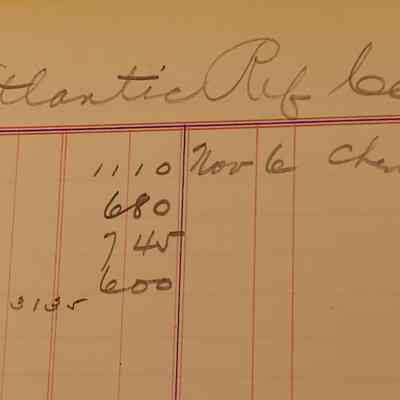 Atlantic Ref Co
1110 Nov 6
680
745
600
3135